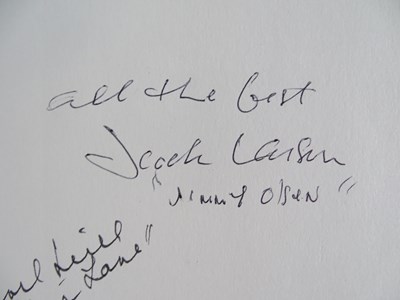 all the best
Jack Larson
"Jimmy Olsen"
Neill
Lane"